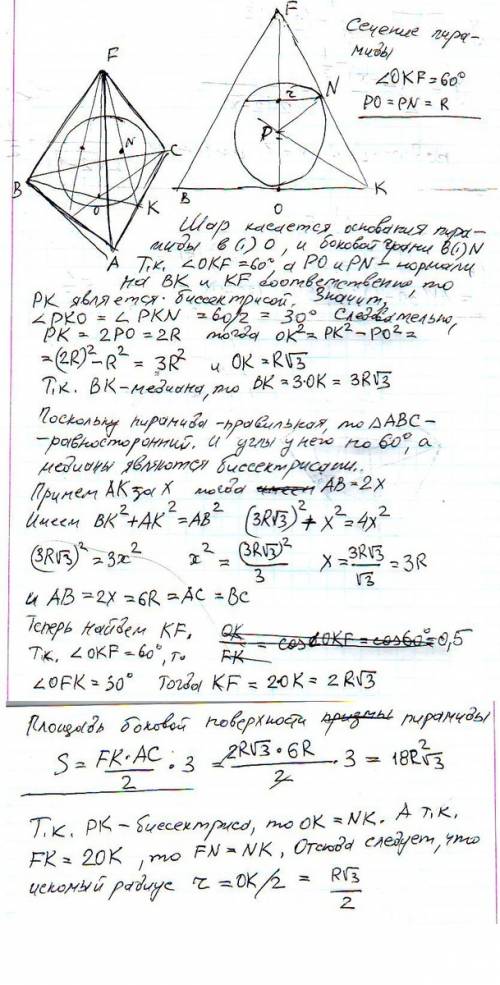 Сечение пира-
миды
∠OKF=60°
PO=PN=R
F
F
r
N
P
B
O
K
N
C
B
O
K
A
Шар касается основания пира-
миды в (·) O, и боковой грани в (·) N
Т.к. ∠OKF=60°, а PO и PN - нормали
на BK и KF соответственно, то
PK является биссектрисой. Значит,
∠PKO = ∠PKN = 60/2 = 30° Следовательно,
PK = 2PO = 2R тогда OK² = PK² - PO² =
= (2R)² - R² = 3R² и OK = R√3
Т.к. BK - медиана, то BK = 3·OK = 3R√3
Поскольку пирамида - правильная, то △ABC -
- равносторонний. И углы у него по 60°, а
медианы являются биссектрисами.
Примем AK за X тогда AB = 2X
Имеем BK² + AK² = AB² (3R√3)² + X² = 4X²
(3R√3)² = 3x² x² = (3R√3)²/3 X = 3R√3/√3 = 3R
и AB = 2X = 6R = AC = BC
Теперь найдем KF. OK/FK = cos∠OKF = cos60° = 0,5
Т.к. ∠OKF = 60°, то
∠OFK = 30° Тогда KF = 2OK = 2R√3
Площадь боковой поверхности призмы пирамиды
S = FK·AC/2 · 3 = 2R√3·6R/2 · 3 = 18R²√3
Т.к. PK - биссектриса, то OK = NK. А т.к.
FK = 2OK, то FN = NK. Отсюда следует, что
искомый радиус r = OK/2 = R√3/2